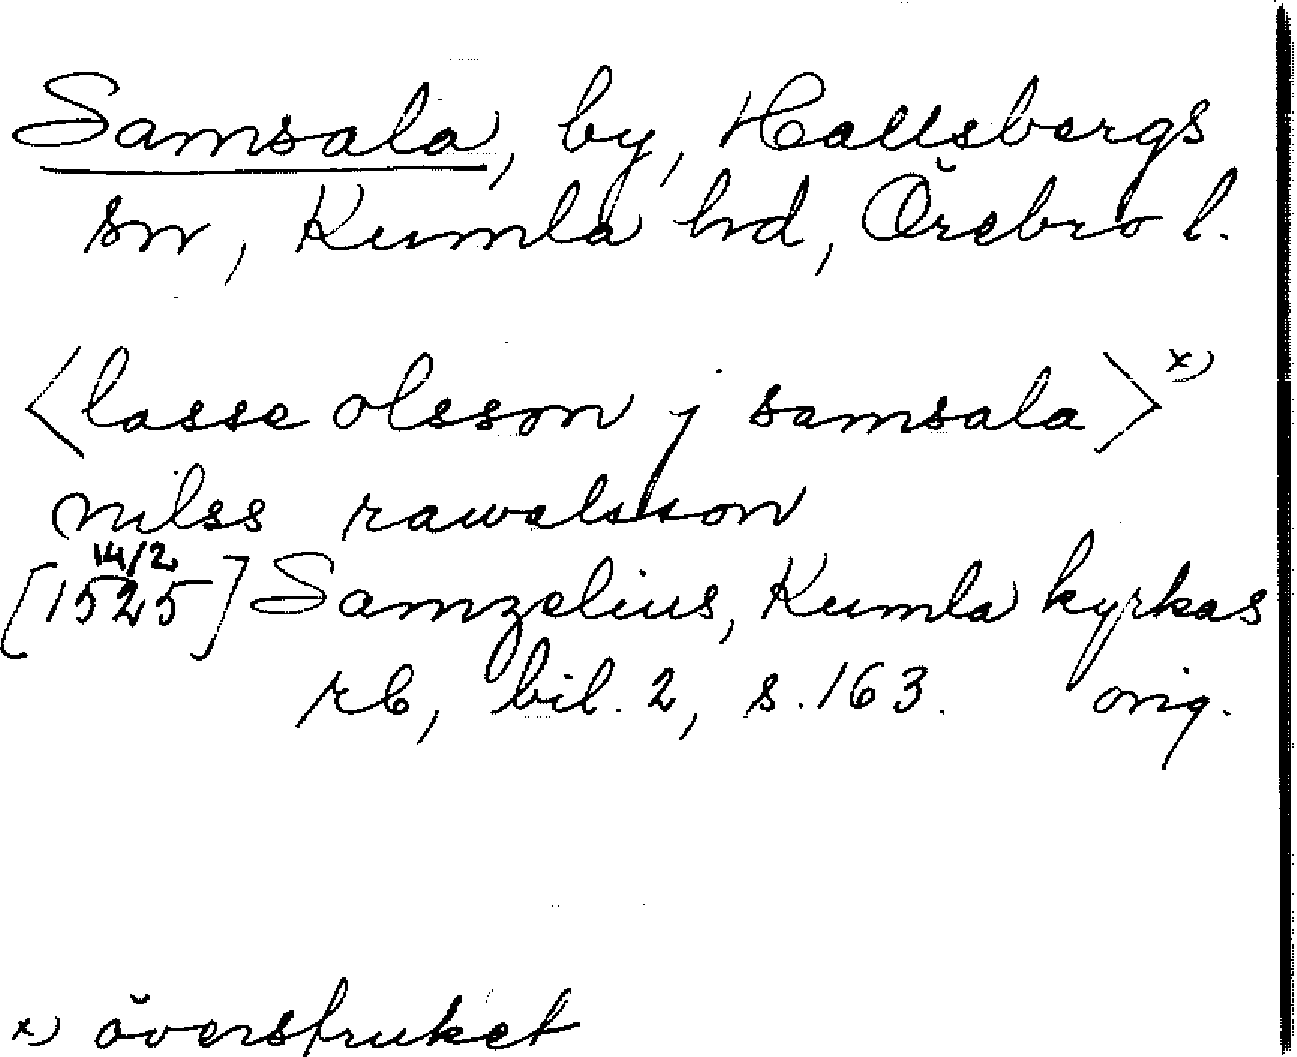 Samsala, by, Hallsbergs
sn, Kumla hd, Örebro l.
<lasse olsson j samsala> x)
nilss rawalsson
14/2
[1525] Samzelius, Kumla kyrkas
rb, bil. 2, s. 163. orig.
x) överstruket